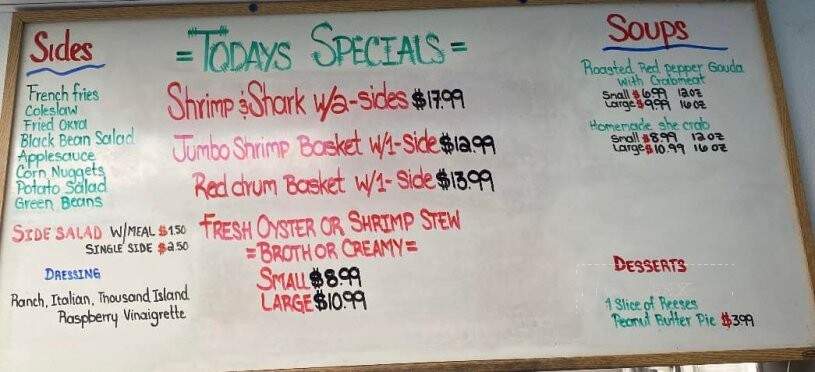 Sides
French fries
Coleslaw
Fried Okra
Black Bean Salad
Applesauce
Corn Nuggets
Potato Salad
Green Beans
SIDE SALAD W/MEAL $1.50
SINGLE SIDE $2.50
DRESSING
Ranch, Italian, Thousand Island
Raspberry Vinaigrette
=TODAYS SPECIALS=
Shrimp & Shark w/2-sides $17.99
Jumbo Shrimp Basket w/1-Side $12.99
Red drum Basket w/1-Side $13.99
FRESH OYSTER OR SHRIMP STEW
=BROTH OR CREAMY=
SMALL $8.99
LARGE $10.99
SOUPS
Roasted Red pepper Gouda
with Crabmeat
Small $6.99 12oz
Large $9.99 16oz
Homemade she crab
Small $8.99 12oz
Large $10.99 16oz
DESSERTS
1 Slice of Reeses
Peanut Butter Pie $3.99